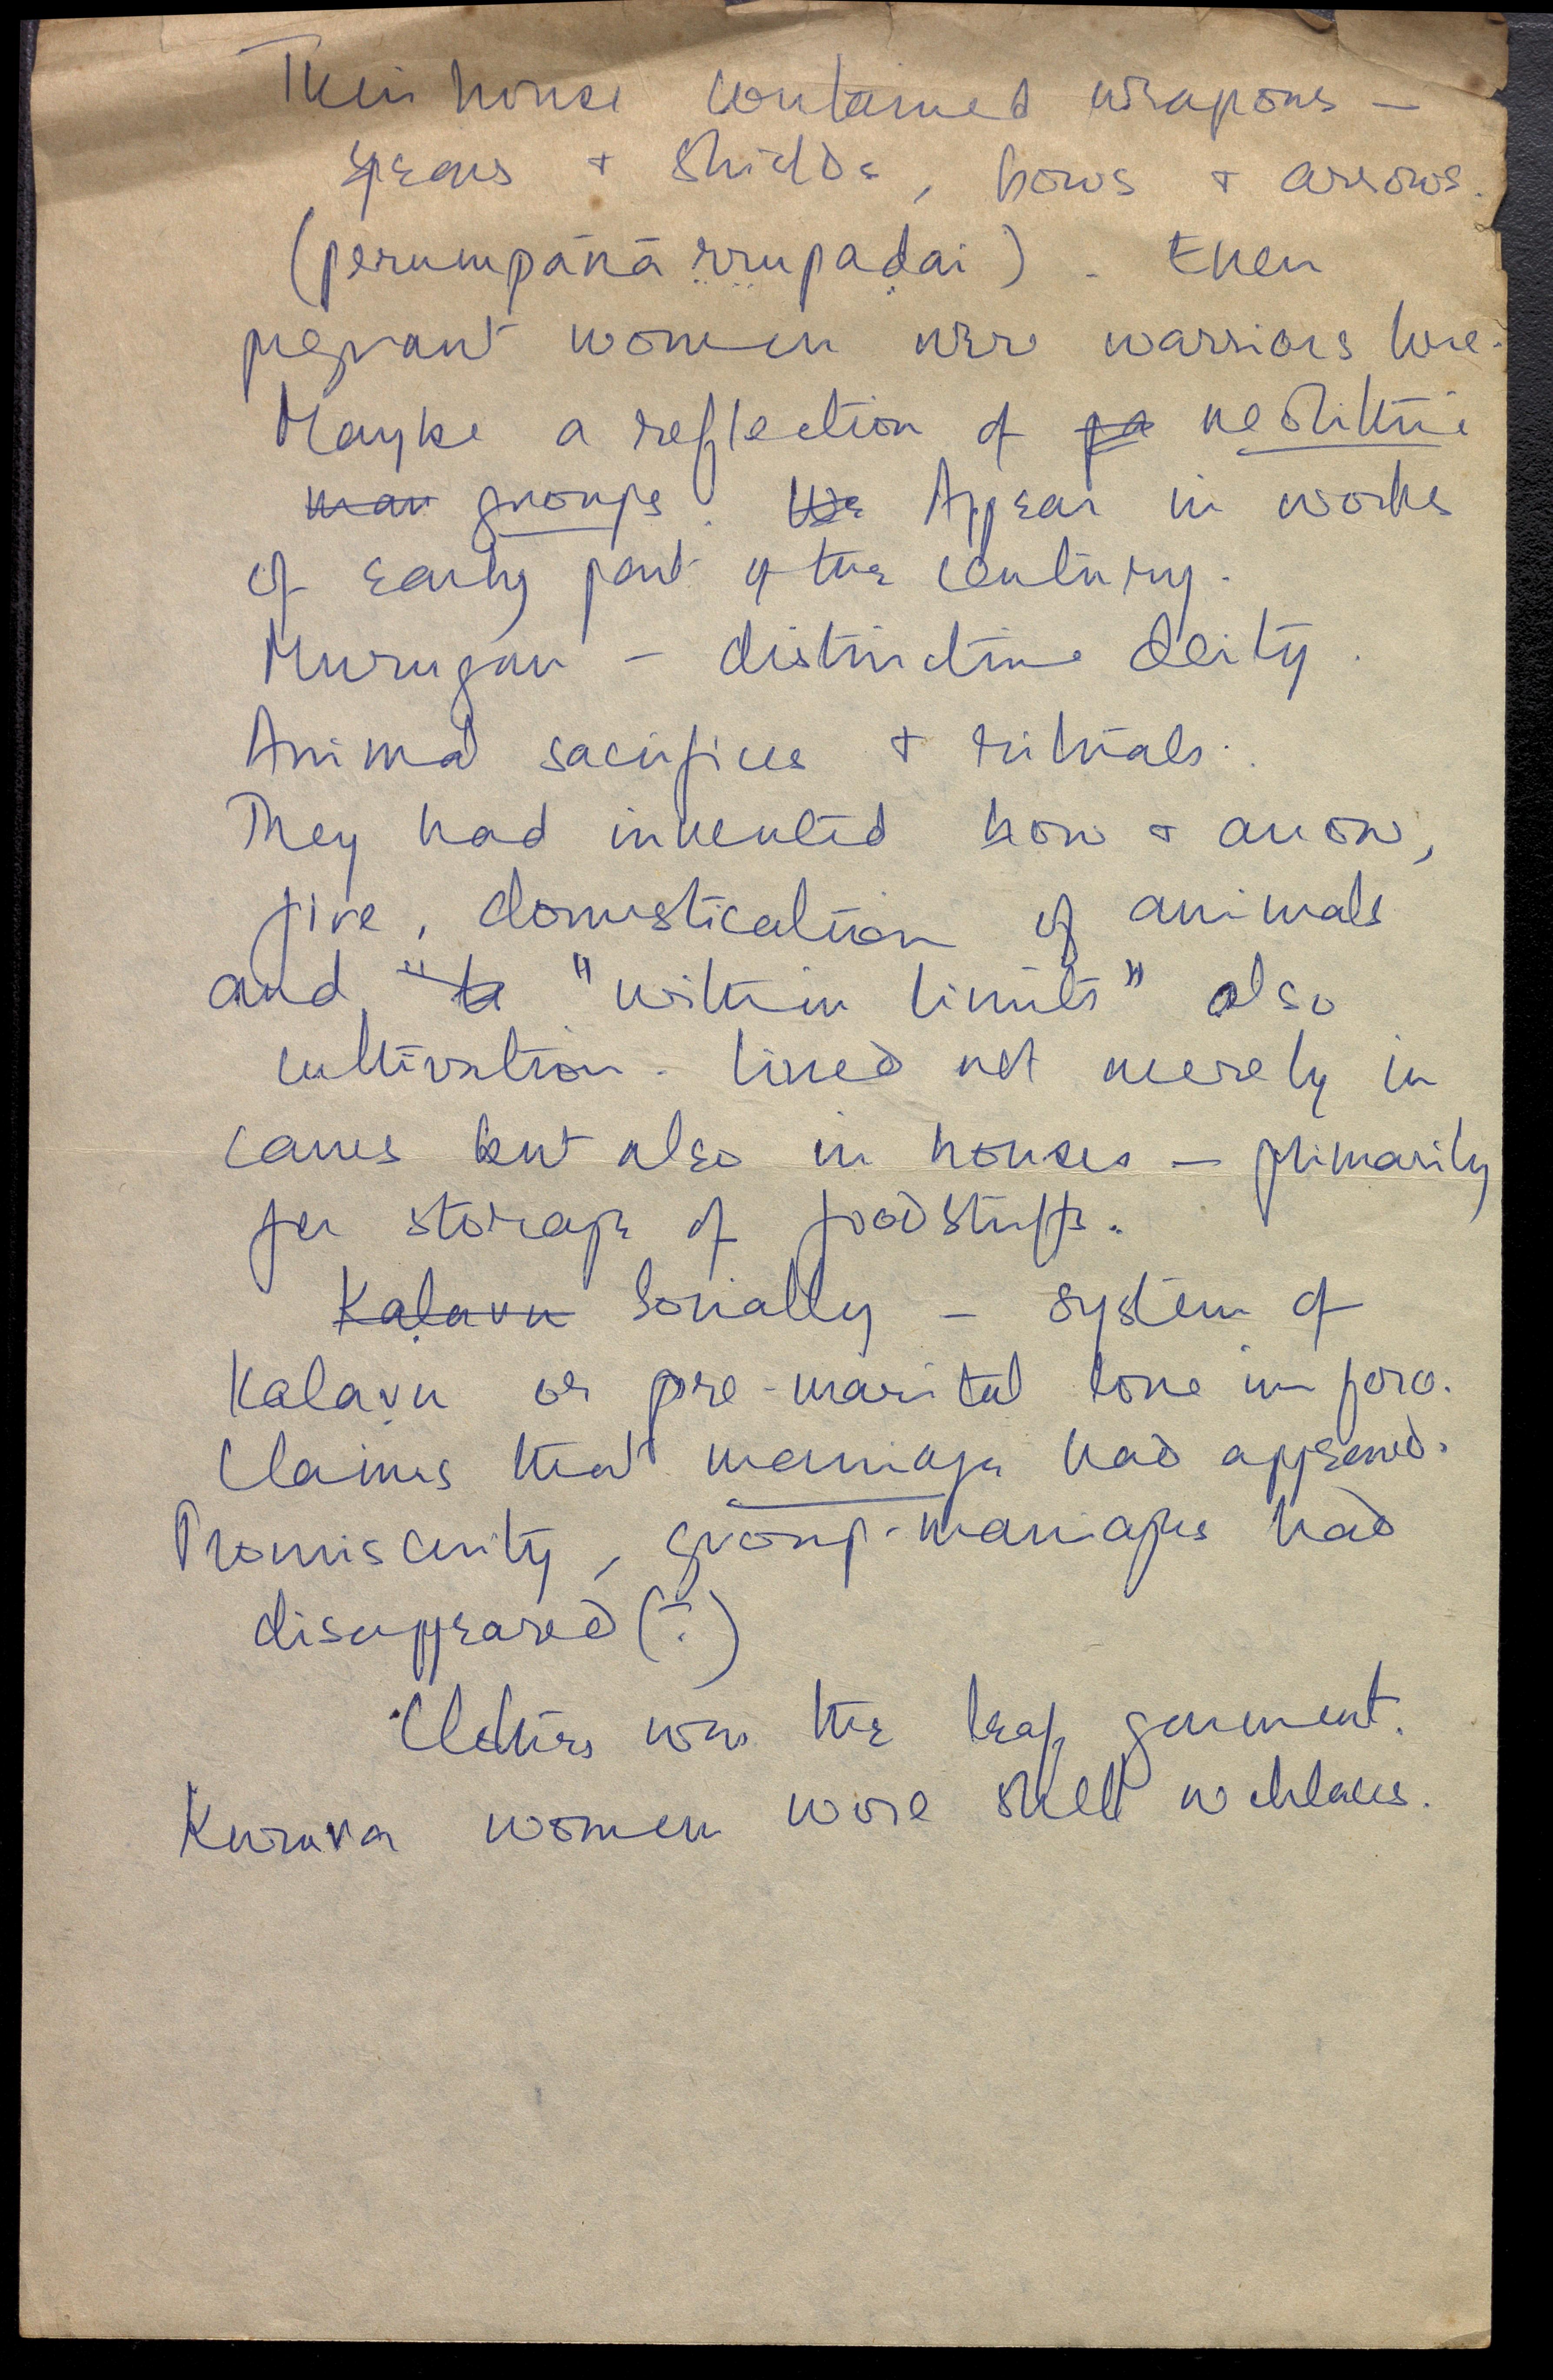 Their house contained weapons –
spears + shields, bows + arrows.
(perumpāṇāṟṟupaḍai). Even
pregnant women were warriors here.
Maybe a reflection of pa neolithic
man groups. We Appear in works
of early part of the century.
Murugan – distinctive deity.
Animal sacrifices + rituals.
They had invented bow + arrow,
fire, domestication of animals
and "to "within limits" also
cultivation. Lived not merely in
caves but also in houses – primarily
for storage of foodstuffs.
Kaḷavu Socially – system of
Kaḷavu or pre-marital love in force.
Claims that marriage had appeared.
Promiscuity, group-marriages had
disappeared (?)
Clothes was the leaf garment.
Kurava women wore shell necklaces.